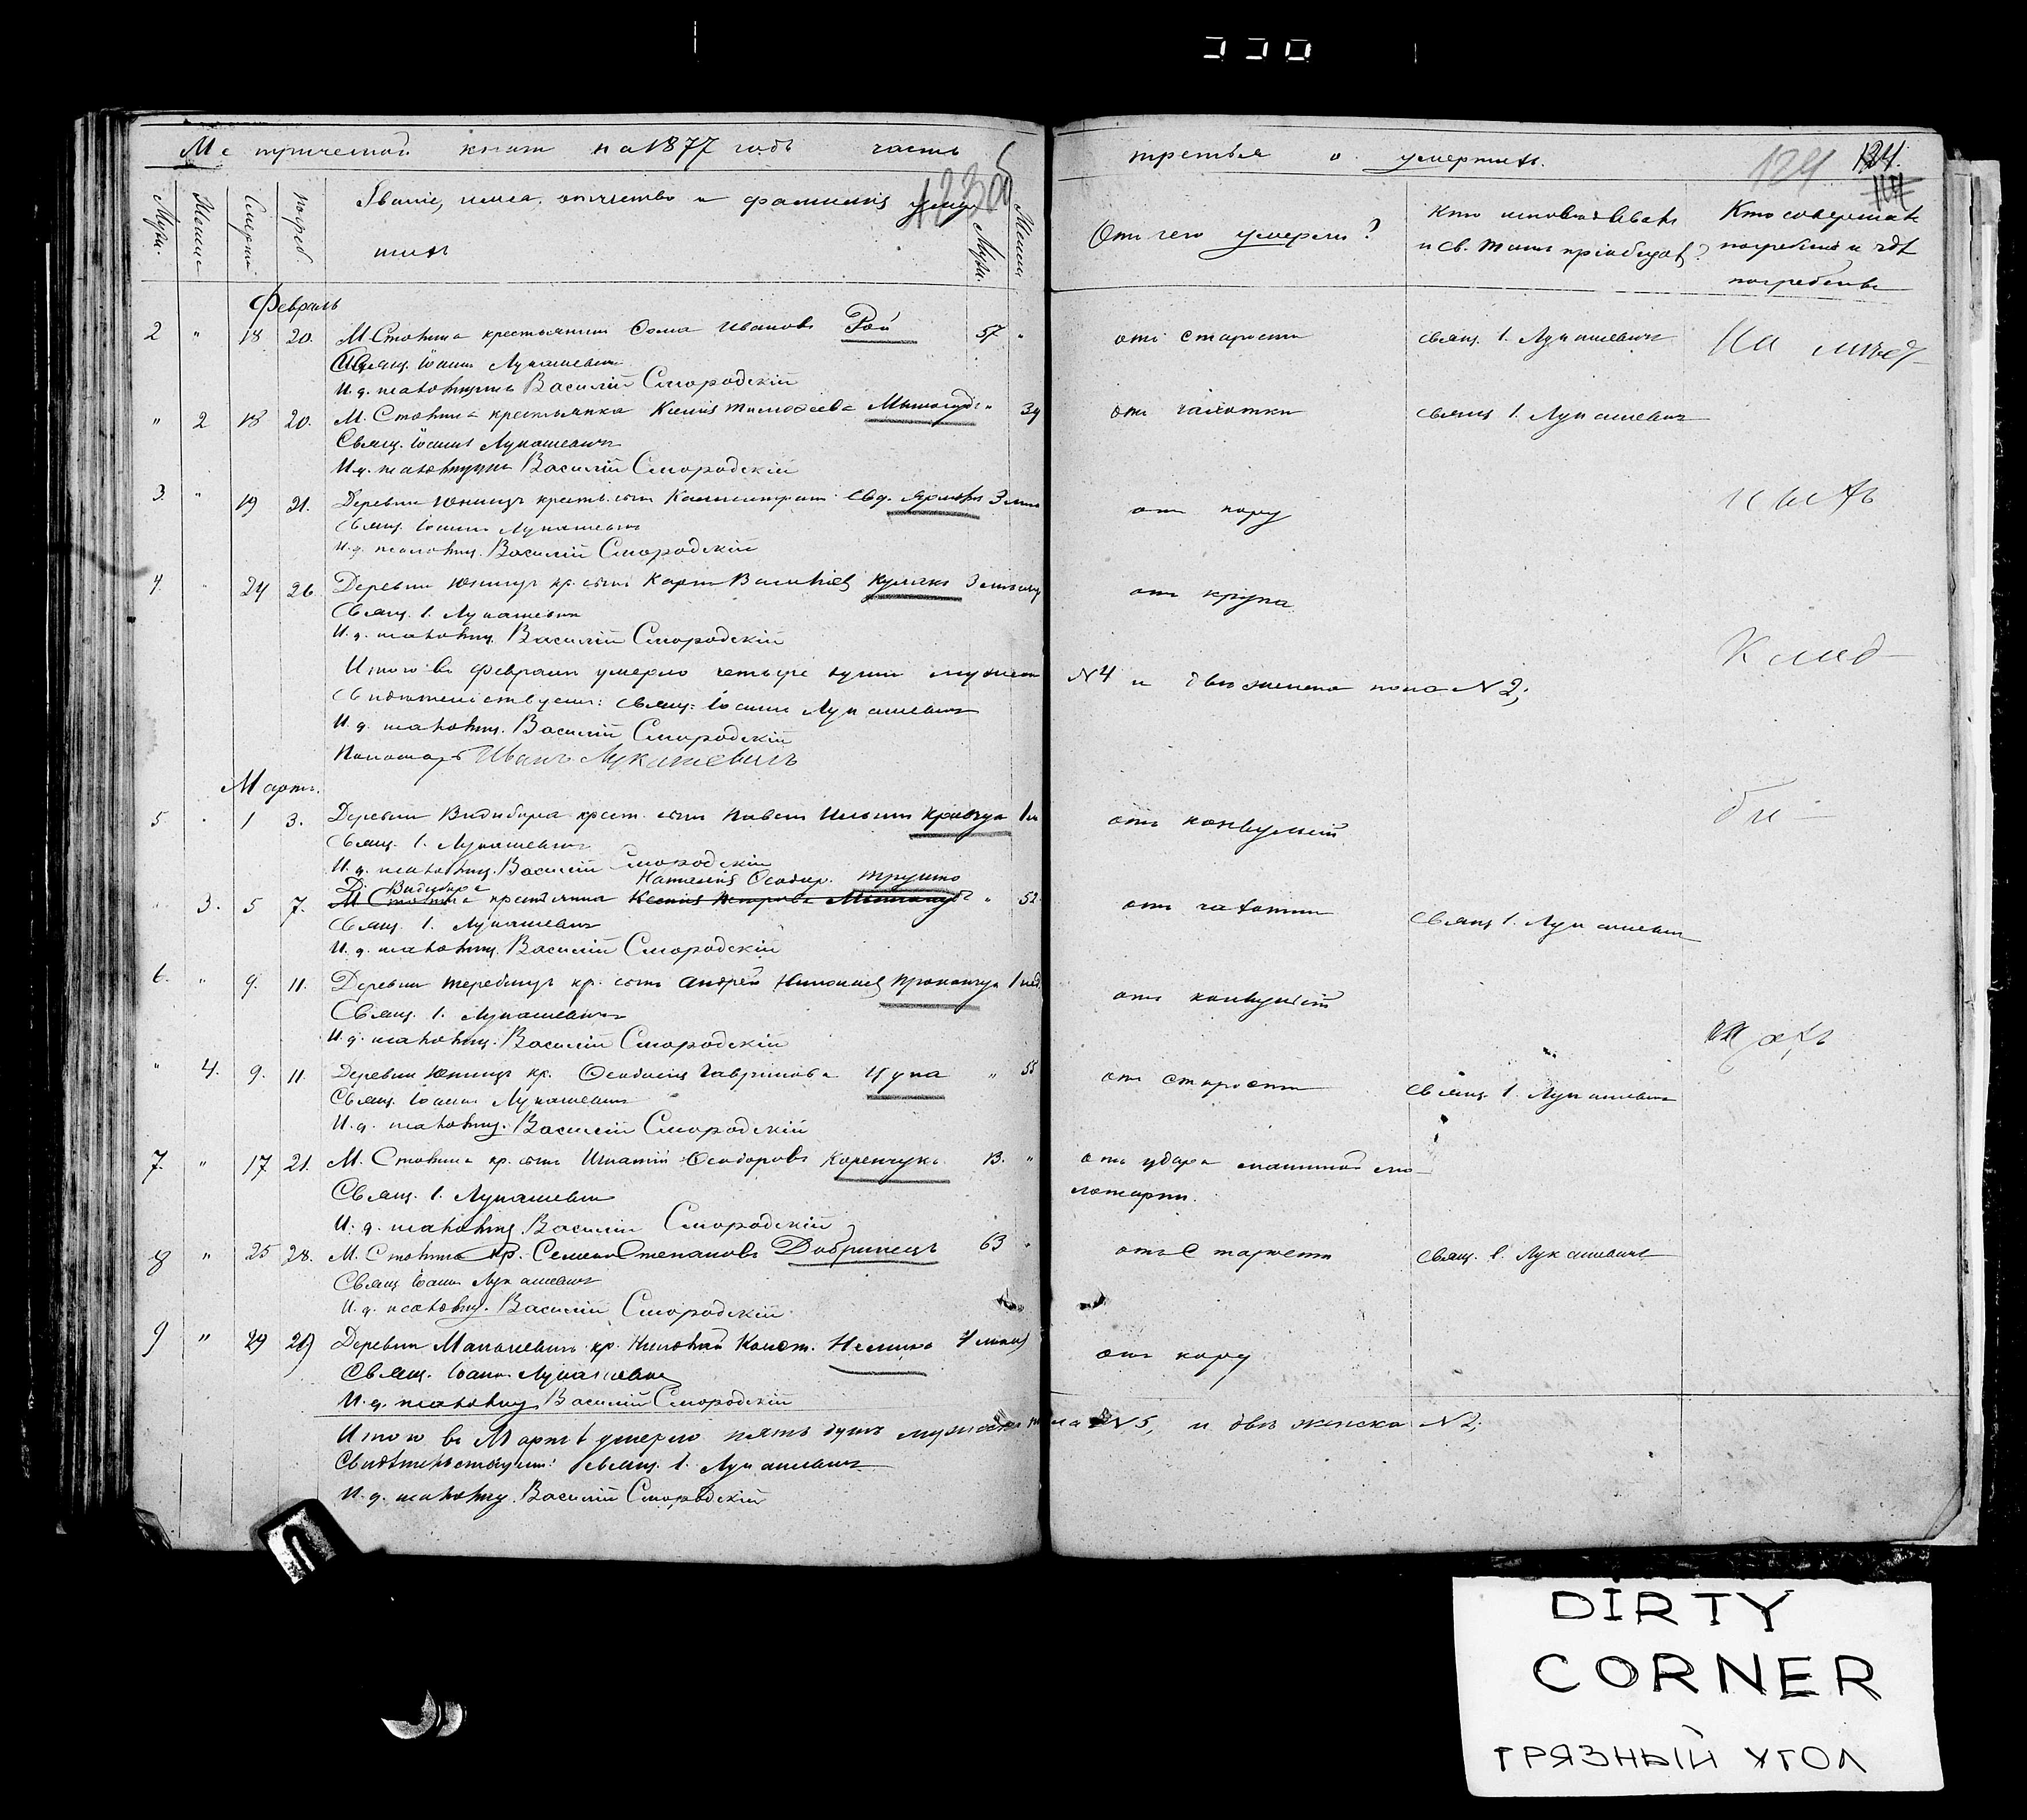 Метрической книги на 1877 годъ часть третья о умершихъ.
124 124.
Мужс. Женс. Смерти погреб. Званіе, имя, отчество и фамилія умершихъ Мужс. Женск. Отъ чего умерли? Кто исповѣдывалъ и св. Таинъ пріобщалъ? Кто совершалъ погребеніе и гдѣ погребены
Февраль
2 " 18 20. М. Столина крестьянинъ Ѳома Ивановъ Рой 57 " отъ старости Свящ. І. Лукашевичъ На
Свящ. Іоаннъ Лукашевичъ
И. д. псаломщика Василій Смородскій
" 2 18 20. М. Столина крестьянка Ксенія Тимоѳеева " 34 отъ чахотки Свящ. І. Лукашевичъ
Свящ. Іоаннъ Лукашевичъ
И. д. псаломщика Василій Смородскій
3. " 19 21. Деревни Юнищъ крест. сынъ 3 отъ кору
Свящ. Іоаннъ Лукашевичъ
И. д. псаломщ. Василій Смородскій
4. " 24 26 Деревни Юнищъ кр. сынъ Карпъ 3 отъ крупа
Свящ. І. Лукашевичъ
И. д. псаломщ. Василій Смородскій
Клад
Итого въ Февралѣ умерло четыре души мужеск N 4 и двѣ женска пола N 2;
Свидѣтельствуетъ: Свящ: Іоаннъ Лукашевичъ
И. д. псаломщ. Василій Смородскій
Пономарь Иванъ Лукашевичъ
Мартъ.
5 " 1 3. Деревни Видибора крест. сынъ Павелъ Ильинъ Кравчук 1 отъ конвульсій
Свящ. І. Лукашевичъ
И. д. псаломщ. Василій Смородскій
Д. Видибора Наталія Ѳеодор. Трушко
" 3. 5 7. М. Столина крестьянка Ксенія Петрова " 52 отъ чахотки Свящ. І. Лукашевичъ
Свящ. І. Лукашевичъ
И. д. псаломщ. Василій Смородскій
6. " 9. 11. Деревни Теребищъ кр. сынъ Андрей Николаев 1 нед. отъ конвульсій
Свящ. І. Лукашевичъ
И. д. псаломщ. Василій Смородскій
" 4. 9. 11. Деревни Юнищъ кр. Ѳеодосія Гаврилова Цупа " 55 отъ старости Свящ. І. Лукашевичъ
Свящ. Іоаннъ Лукашевичъ
И. д. псаломщ. Василій Смородскій
7. " 17 21. М. Столина кр. сынъ Игнатій Ѳеодоровъ Коренчукъ 13. " отъ удара машиной молотарни.
Свящ. І. Лукашевичъ
И. д. псаломщ. Василій Смородскій
8 " 25 28. М. Столина кр. Семенъ Степановъ Добринецъ 63 " отъ старости Свящ. І. Лукашевичъ
Свящ. Іоаннъ Лукашевичъ
И. д. псаломщ. Василій Смородскій
9 " 29 29 Деревни Маньковичъ кр. Николай Конст. отъ кору
Свящ. Іоаннъ Лукашевичъ
И. д. псаломщ. Василій Смородскій
Итого въ Мартѣ умерло пять душъ мужеска пола N 5, и двѣ женска N 2;
Свидѣтельствуетъ: Свящ. І. Лукашевичъ
И. д. псаломщ. Василій Смородскій
DIRTY
CORNER
ГРЯЗНЫЙ УГОЛ